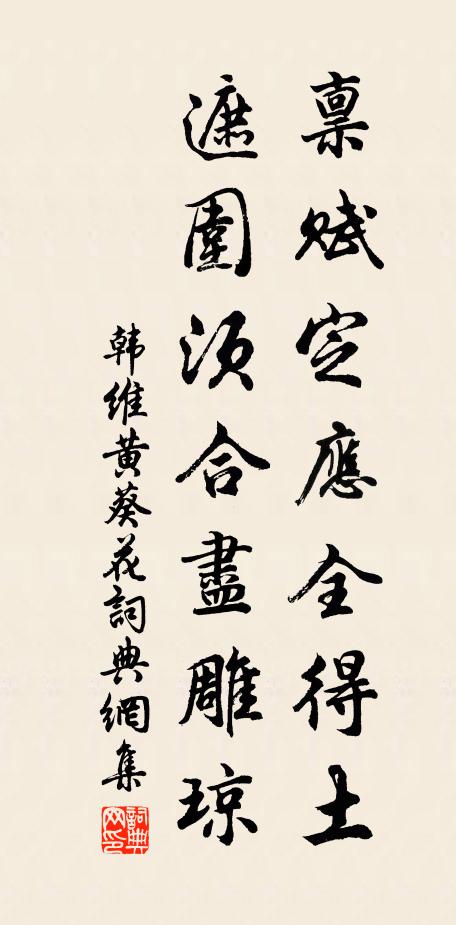 稟賦定應全得土
遮圍須合盡雕琼
韩維黄葵花詞典網集
詞典网印